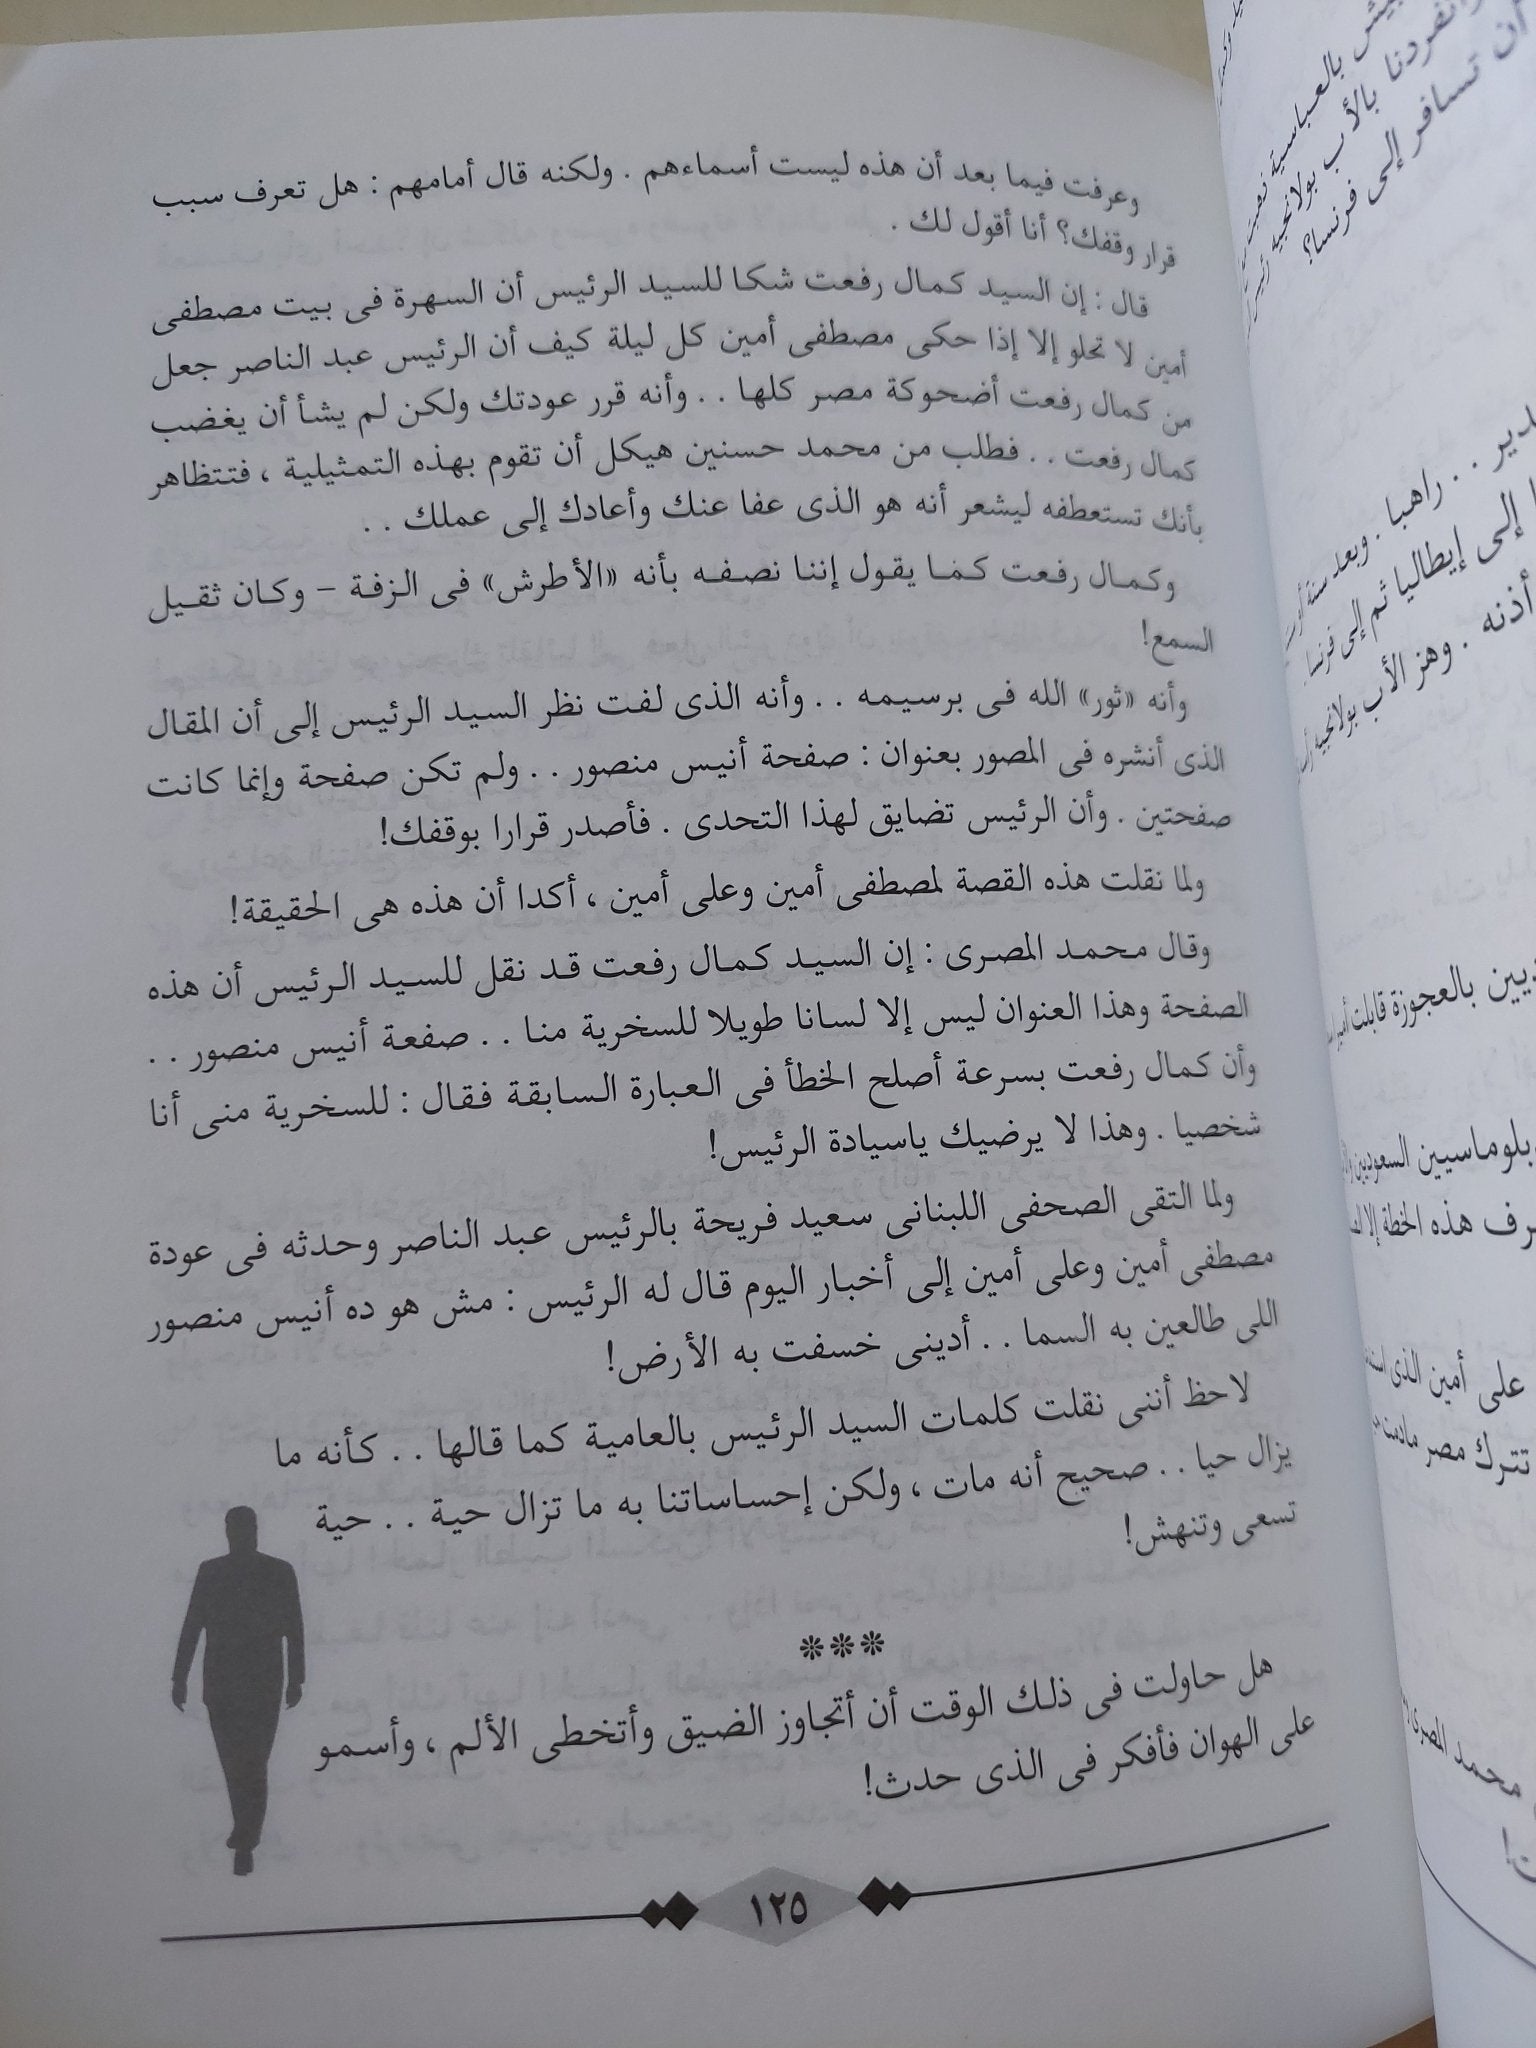 وعرفت فيما بعد أن هذه ليست أسماءهم . ولكنه قال أمامهم : هل تعرف سبب
قرار وقفك؟ أنا أقول لك .
قال : إن السيد كمال رفعت شكا للسيد الرئيس أن السهرة فى بيت مصطفى
أمين لا تحلو إلا إذا حكى مصطفى أمين كل ليلة كيف أن الرئيس عبد الناصر جعل
من كمال رفعت أضحوكة مصر كلها . . وأنه قرر عودتك ولكن لم يشأ أن يغضب
كمال رفعت . . فطلب من محمد حسنين هيكل أن تقوم بهذه التمثيلية ، فتتظاهر
بأنك تستعطفه ليشعر أنه هو الذى عفا عنك وأعادك إلى عملك . .
وكمال رفعت كما يقول إننا نصفه بأنه «الأطرش» فى الزفة – وكان ثقيل
السمع!
وأنه «ثور» الله فى برسيمه . . وأنه الذى لفت نظر السيد الرئيس إلى أن المقال
الذى أنشره فى المصور بعنوان : صفحة أنيس منصور . . ولم تكن صفحة وإنما كانت
صفحتين . وأن الرئيس تضايق لهذا التحدى . فأصدر قرارا بوقفك!
ولما نقلت هذه القصة لمصطفى أمين وعلى أمين ، أكدا أن هذه هى الحقيقة!
وقال محمد المصرى : إن السيد كمال رفعت قد نقل للسيد الرئيس أن هذه
الصفحة وهذا العنوان ليس إلا لسانا طويلا للسخرية منا . . صفعة أنيس منصور . .
وأن كمال رفعت بسرعة أصلح الخطأ فى العبارة السابقة فقال : للسخرية منى أنا
شخصيا . وهذا لا يرضيك ياسيادة الرئيس!
ولما التقى الصحفى اللبنانى سعيد فريحة بالرئيس عبد الناصر وحدثه فى عودة
مصطفى أمين وعلى أمين إلى أخبار اليوم قال له الرئيس : مش هو ده أنيس منصور
اللى طالعين به السما . . أدينى خسفت به الأرض!
لاحظ أننى نقلت كلمات السيد الرئيس بالعامية كما قالها . . كأنه ما
يزال حيا . . صحيح أنه مات ، ولكن إحساساتنا به ما تزال حية . . حية
تسعى وتنهش!
❊❊❊
هل حاولت فى ذلك الوقت أن أتجاوز الضيق وأتخطى الألم ، وأسمو
على الهوان فأفكر فى الذى حدث!
١٢٥
بالعباسية
وانفردنا بالأب بولانجيه
أن تسافر إلى فرنسا؟
راهبا . وبعد سنة
إلى إيطاليا ثم إلى فرنسا
أذنه . وهز الأب بولانجيه
بالعجوزة قابلت
السعوديين
هذه الخطة إلا
على أمين الذى
تترك مصر مادمت
محمد المصرى